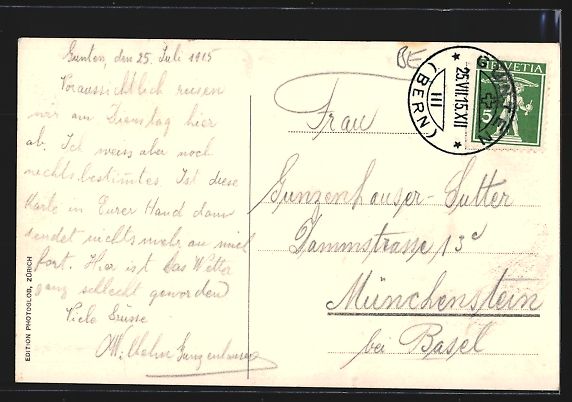 Gunten, den 25. Juli 1915
Voraussichtlich reisen
wir am Dienstag hier
ab. Ich weiss aber noch
nichts bestimtes. Ist diese
Karte in Eurer Hand dann
sendet nichts mehr an mich
fort. Hier ist das Wetter
ganz schlecht geworden
Viele Grüsse
Wilhelm Gunzenhauser
EDITION PHOTOGLOB, ZÜRICH
BE
GUNTEN
25.VII.15.XII
III
(BERN)
HELVETIA
5
Frau
Gunzenhauser-Sutter
Dammstrasse 13c
Münchenstein
bei Basel